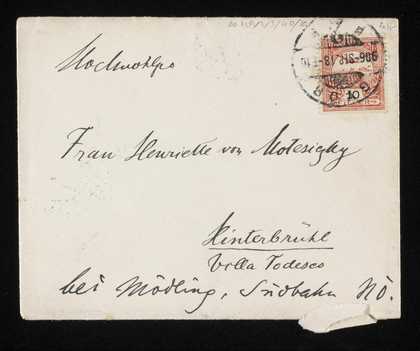 Hochwohlgb
Frau Henriette von Motesiczky
Hinterbrühl
Villa Todesco
bei Mödling, Südbahn NÖ.
10